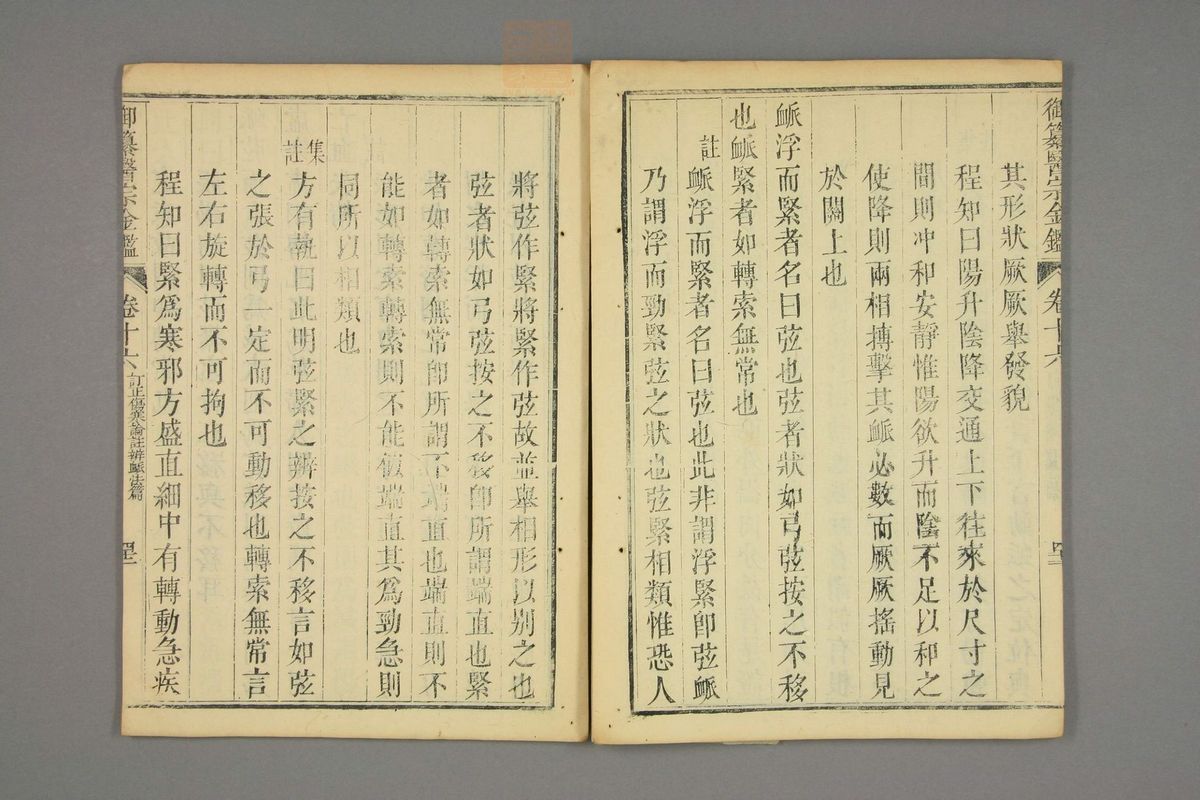 御纂醫宗金鑑 卷十六
其形狀厥厥舉發貌
程知曰陽升陰降交通上下往來於尺寸之
間則冲和安靜惟陽欲升而陰不足以和之
使降則兩相搏擊其脈必數而厥厥搖動見
於關上也
脈浮而緊者名曰弦也弦者狀如弓弦按之不移
也脈緊者如轉索無常也
註
脈浮而緊者名曰弦也此非謂浮緊卽弦脈
乃謂浮而勁緊弦之狀也弦緊相類惟恐人
將弦作緊將緊作弦故並舉相形以別之也
弦者狀如弓弦按之不移卽所謂端直也緊
者如轉索無常卽所謂不端直也端直則不
能如轉索轉索則不能復端直其爲勁急則
同所以相類也
集註
方有執曰此明弦緊之辨按之不移言如弦
之張於弓一定而不可動移也轉索無常言
左右旋轉而不可拘也
程知曰緊爲寒邪方盛直細中有轉動急疾
御纂醫宗金鑑 卷十六 訂正傷寒論註辨脈法篇